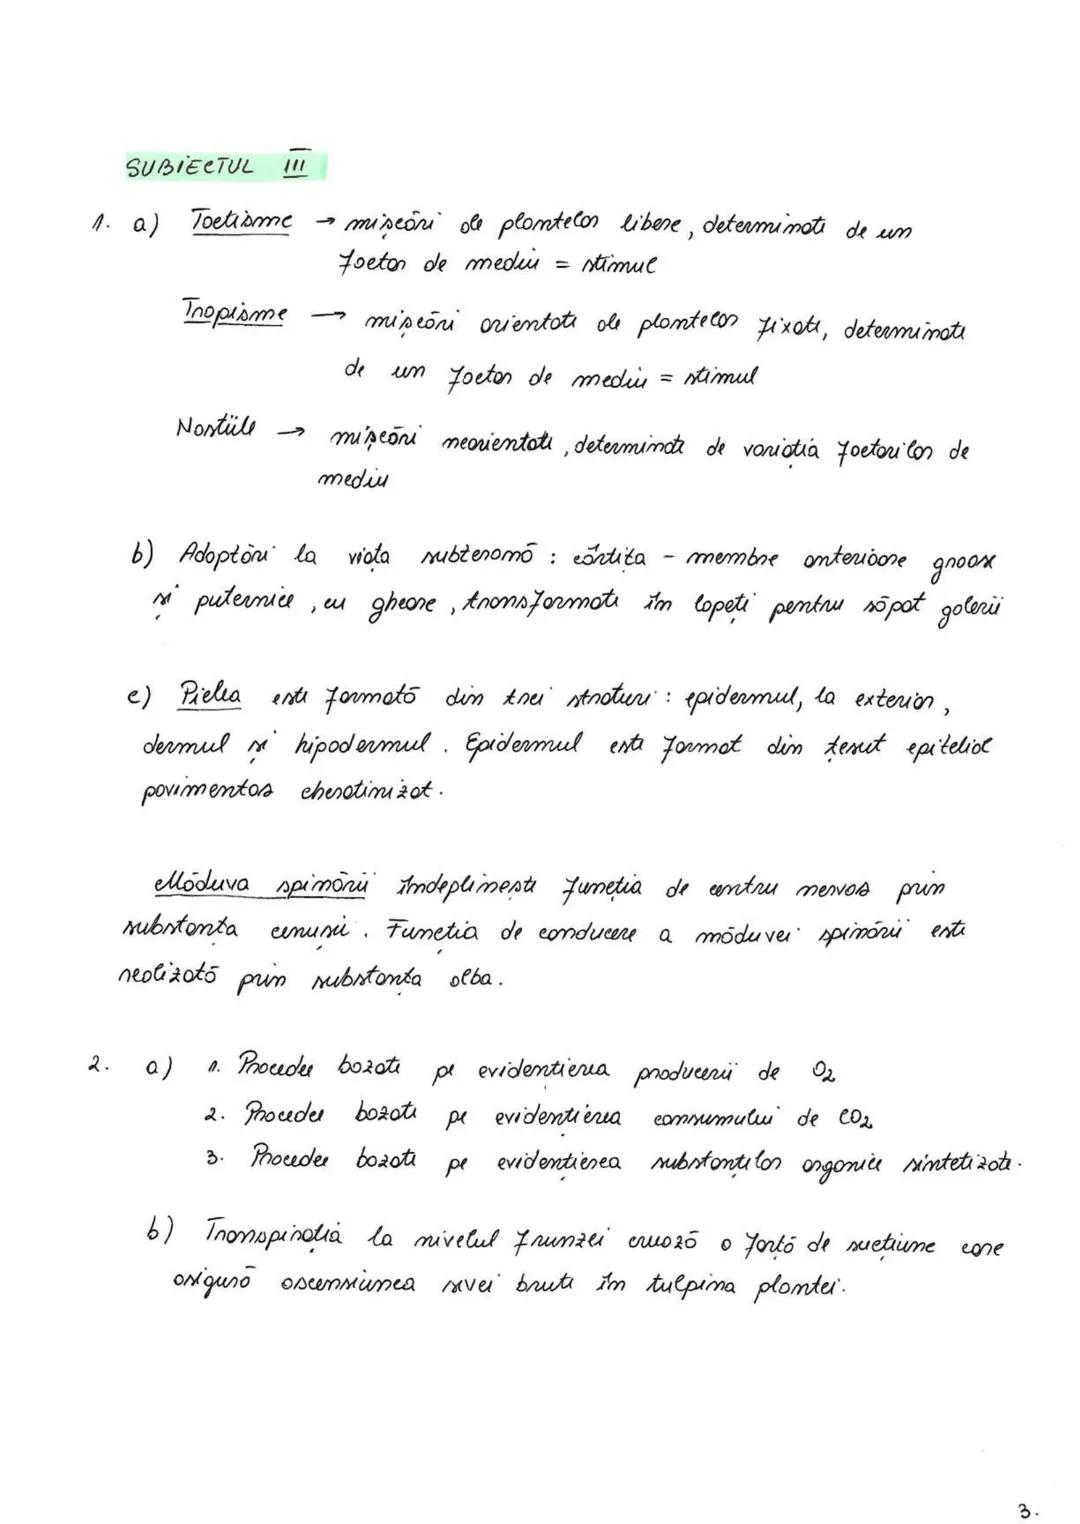 SUBIECTUL III
1. a) Tactisme → mișcări ale plantelor libere, determinate de un
factor de mediu = stimul
Tropisme → mișcări orientate ale plantelor fixate, determinate
de un factor de mediu = stimul
Nastiile → mișcări neorientate, determinate de variația factorilor de
mediu
b) Adaptări la viața subterană : cârtița - membre anterioare groase
și puternice, cu gheare, transformate în lopeți pentru săpat galerii
c) Pielea este formată din trei straturi : epidermul, la exterior,
dermul și hipodermul. Epidermul este format din țesut epitelial
pavimentos cheratinizat.
Măduva spinării îndeplinește funcția de centru nervos prin
substanța cenușii. Funcția de conducere a măduvei spinării este
realizată prin substanța alba.
2. a) 1. Procedee bazate pe evidențierea producerii de O₂
2. Procedee bazate pe evidențierea consumului de CO₂
3. Procedee bazate pe evidențierea substanțelor organice sintetizate.
b) Transpirația la nivelul frunzei crează o forță de sucțiune care
asigură ascensiunea sevei brute în tulpina plantei.
3.